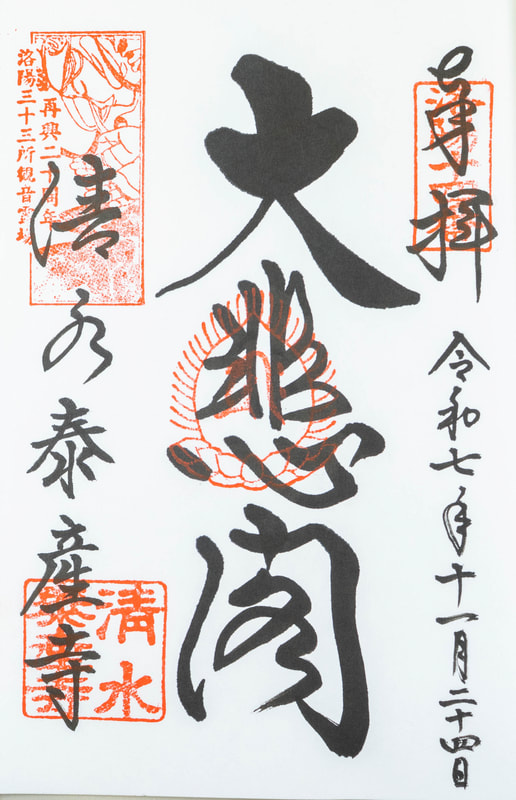 奉拝
令和七年十一月二十四日
大悲閣
清水泰産寺
再興二十周年
洛陽三十三所観音霊場
清水
泰産寺